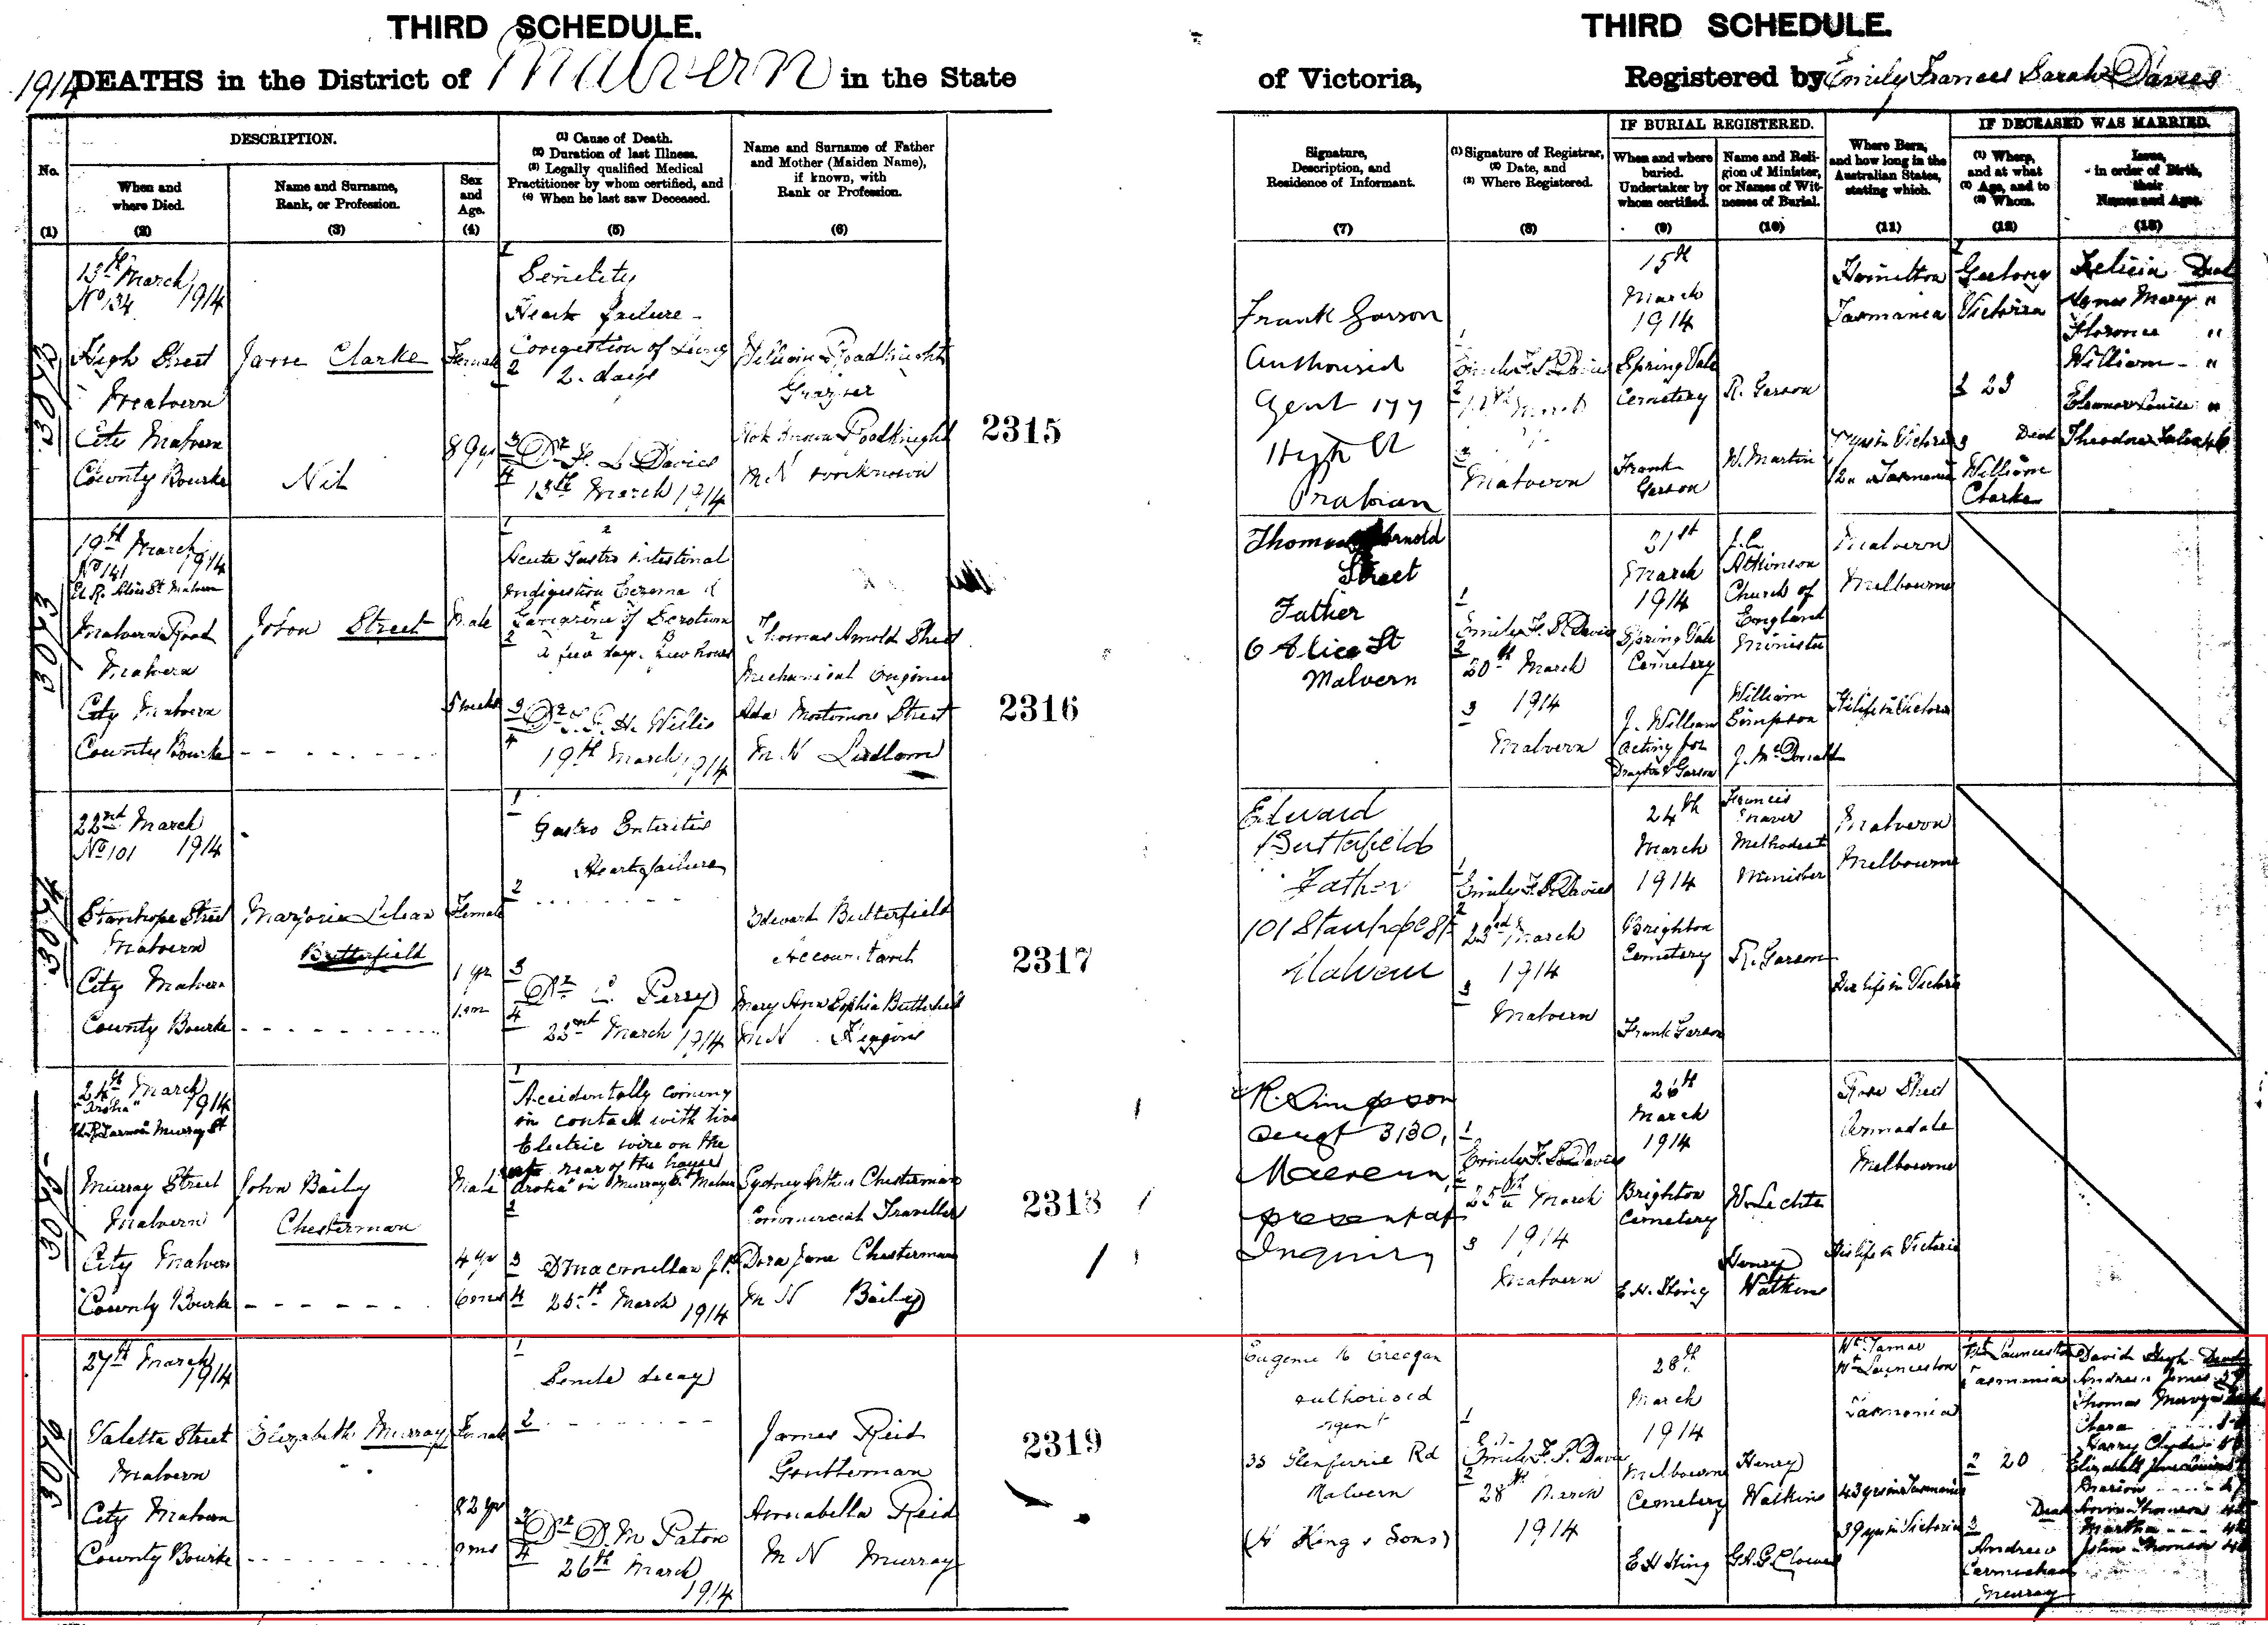 THIRD SCHEDULE.
1914 DEATHS in the District of Malvern in the State
THIRD SCHEDULE.
of Victoria, Registered by Emily Frances Sarah Davies
No.
(1)
DESCRIPTION.
When and
where Died.
(2)
Name and Surname,
Rank, or Profession.
(3)
Sex
and
Age.
(4)
(1) Cause of Death.
(2) Duration of last Illness.
(3) Legally qualified Medical
Practitioner by whom certified, and
(4) When he last saw Deceased.
(5)
Name and Surname of Father
and Mother (Maiden Name),
if known, with
Rank or Profession.
(6)
Signature,
Description, and
Residence of Informant.
(7)
(1) Signature of Registrar,
(2) Date, and
(3) Where Registered.
(8)
IF BURIAL REGISTERED.
When and where
buried.
Undertaker by
whom certified.
(9)
Name and Reli-
gion of Minister,
or Names of Wit-
nesses of Burial.
(10)
Where Born,
and how long in the
Australian States,
stating which.
(11)
IF DECEASED WAS MARRIED.
(1) Where,
and at what
(2) Age, and to
(3) Whom.
(12)
Issue,
in order of Birth,
their
Names and Ages.
(13)
3072
13th March
No 134 1914
High Street
Malvern
City Malvern
County Bourke
Jane Clarke
Nil
Female
89 yrs
1
Senility
Heart failure
Congestion of Lungs
2
2. days
3
Dr. F. L Davies
4
13th March 1914
William Roadknight
Grazier
Not known Roadknight
M N unknown
2315
Frank Garson
Authorised
Agent 177
High St
Prahran
1
Emily F. S. Davies
2
March
3
Malvern
15th
March
1914
Spring Vale
Cemetery
Frank
Garson
R. Garson
W. Martin
Hamilton
Tasmania
in Victoria
12 " Tasmania
1
Geelong
Victoria
2 23
3 Dead
William
Clarke
Felicia Dead
Agnes Mary "
Florence "
William "
Eleanor Louise "
Theodore
3073
19th March
No 141 1914
Malvern Road
Malvern
City Malvern
County Bourke
John Street
Male
5 weeks
1
Acute Gastro intestinal
Indigestion Eczema &
Gangrene of Scrotum
2
a few days. few hours
3
Dr. H. Willis
4
19th March 1914
Thomas Arnold Street
Mechanical Engineer
Ada Mortomore Street
M N Ludlow
2316
Thomas Arnold
Street
Father
6 Alice St
Malvern
1
Emily F. S. Davies
2
20th March
3 1914
Malvern
21st
March
1914
Spring Vale
Cemetery
J. William
acting for
Drayton & Garson
J. C.
Atkinson
Church of
England
Minister
William
Simpson
J. McDonald
Malvern
Melbourne
His life in Victoria
3074
22nd March
No 101 1914
Stanhope Street
Malvern
City Malvern
County Bourke
Marjorie Lilian
Butterfield
Female
1 yr
1 m
1
Gastro Enteritis
Heart failure
2
3
Dr. Perry
4
22nd March 1914
Edward Butterfield
Accountant
Mary Ann Sophia Butterfield
M N Higgins
2317
Edward
Butterfield
Father
101 Stanhope St
Malvern
1
Emily F. S. Davies
2
23rd March
1914
3
Malvern
24th
March
1914
Brighton
Cemetery
Frank Garson
Francis
Methodist
Minister
R. Garson
Malvern
Melbourne
Her life in Victoria
3075
24th March
1914
Murray Street
Malvern
City Malvern
County Bourke
John Baily
Chesterman
Male
4 yrs
6 mos
1
Accidentally coming
in contact with live
Electric wire on the
rear of the house
"Arotia" in Murray St Malvern
2
3 D Macmillan J.P.
4 25th March 1914
Sydney Arthur Chesterman
Commercial Traveller
Dora Jane Chesterman
M N Baily
2318
R. Simpson
Sergt 3130,
Malvern,
present at
Inquiry
1
Emily F. S. Davies
2
25th March
3 1914
Malvern
26th
March
1914
Brighton
Cemetery
E. H. King
W. Lechte
Henry
Watkins
Rose Street
Armadale
Melbourne
His life in Victoria
3076
27th March
1914
Valetta Street
Malvern
City Malvern
County Bourke
Elizabeth Murray
Female
82 yrs
1
Senile decay
2
3
Dr. D. M Paton
4
26th March
1914
James Reid
Gentleman
Annabella Reid
M N Murray
2319
Eugene Creegan
authorised
agent
33 Glenferrie Rd
Malvern
(H King & Sons)
1
Emily F. S. Davies
2
28th March
1914
28th
March
1914
Melbourne
Cemetery
E H King
Henry
Watkins
Wt Tamar
Wt Launceston
Tasmania
43 yrs in Tasmania
39 yrs in Victoria
1
Launceston
Tasmania
2 20
Dead
3
Andrew
Carmichael
Murray
David Hugh Dead
Andrew James
Thomas
Clara
Harry Clyde
Elizabeth Jane
Marion
Thomson
Martha
John Thomson